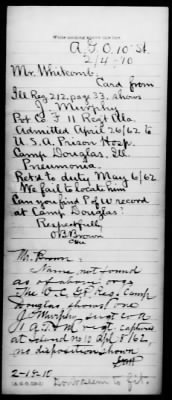 A.G.O. 10" St.
2/4-10
Mr. Whitcomb,
Card from
Ill Reg 212, page 33, shows
J. Murphy
Pvt Co F 11 Regt Ala.
Admitted April 26/62 to
U.S.A. Prison Hosp.
Camp Douglas, Ill.
Pneumonia.
Retd to duty May 6/62
We fail to locate him
Can you find P of W record
at Camp Douglas?
Respectfully
O B Brown
Mr. Brown:
Name not found
as of above orgs
The Camp
Douglas shows one
J. Murphy,
captured
at Island no 10 Apl 8/62,
no disposition shown
2-18-10